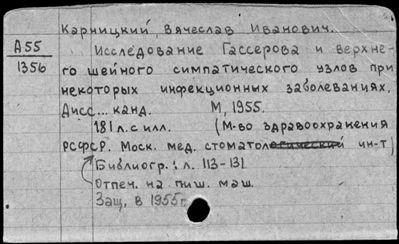 Карницкий Вячеслав Иванович.
А55
1356
Исследование Гассерова и верхне-
го шейного симпатического узлов при
некоторых инфекционных заболеваниях.
Дисс... канд. М, 1955.
181 л. с илл. (М-во здравоохранения
РСФСР. Моск. мед. стоматологический ин-т)
Библиогр.: л. 113-131
Отпеч. на пиш. маш.
Защ. в 1955г.